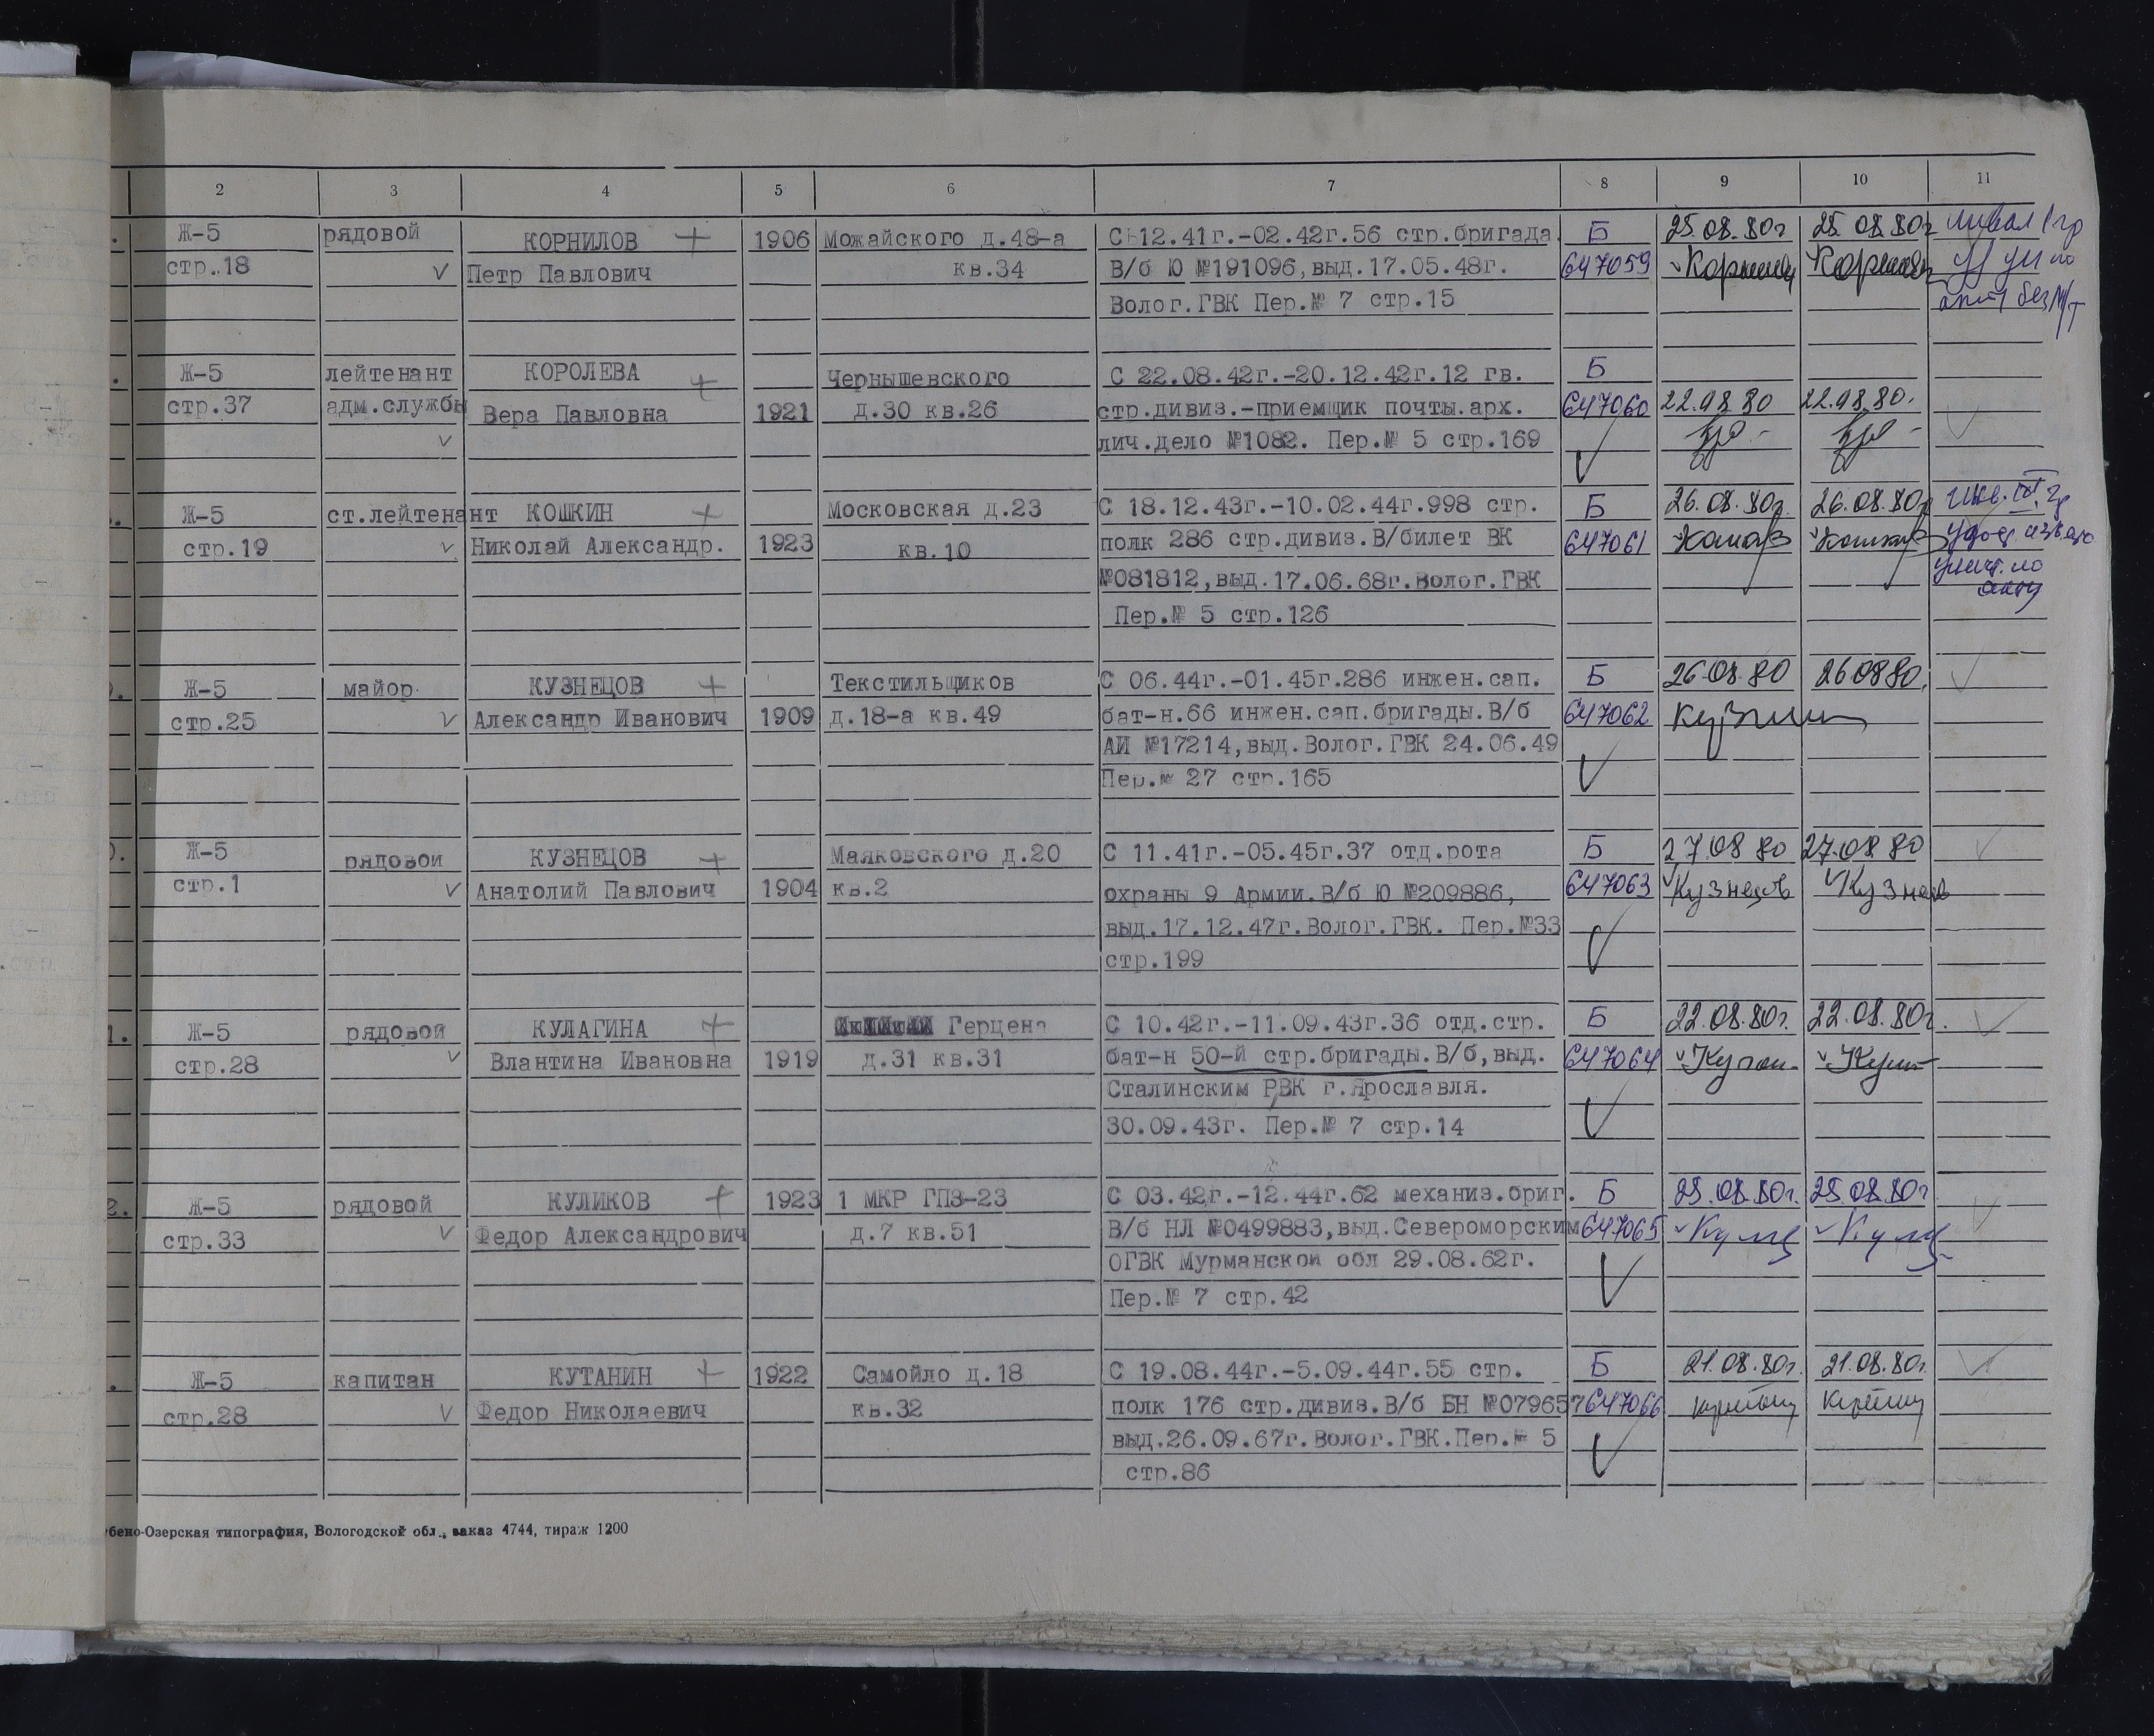 2 3 4 5 6 7 8 9 10 11
Ж-5 рядовой КОРНИЛОВ + 1906 Можайского д.48-а С 12.41г.-02.42г.56 стр.бригада Б 25.08.80г 25.08.80г
стр.18 Петр Павлович кв.34 В/б Ю №191096,выд.17.05.48г. 647059
Волог.ГВК Пер.№ 7 стр.15 без
Ж-5 лейтенант КОРОЛЕВА + Чернышевского С 22.08.42г.-20.12.42г.12 гв. Б
стр.37 адм.службы Вера Павловна 1921 д.30 кв.26 стр.дивиз.-приемщик почты.арх. 647060 22.08.80 22.08.80.
лич.дело №1082. Пер.№ 5 стр.169
Ж-5 ст.лейтенант КОШКИН + Московская д.23 С 18.12.43г.-10.02.44г.998 стр. Б 26.08.80г. 26.08.80г
стр.19 Николай Александр. 1923 кв.10 полк 286 стр.дивиз.В/билет ВК 647061
№081812,выд.17.06.68г.Волог.ГВК
Пер.№ 5 стр.126 акту
Ж-5 майор КУЗНЕЦОВ + Текстильщиков С 06.44г.-01.45г.286 инжен.сап. Б 26.08.80 26.08.80.
стр.25 Александр Иванович 1909 д.18-а кв.49 бат-н.66 инжен.сап.бригады.В/б 647062
АИ №17214,выд.Волог.ГВК 24.06.49
Пер.№ 27 стр.165
Ж-5 рядовой КУЗНЕЦОВ + Маяковского д.20 С 11.41г.-05.45г.37 отд.рота Б 27.08.80 27.08.80
стр.1 Анатолий Павлович 1904 кв.2 охраны 9 Армии.В/б Ю №209886, 647063 Кузнецов
выд.17.12.47г.Волог.ГВК. Пер.№33
стр.199
1. Ж-5 рядовой КУЛАГИНА + Герцена С 10.42г.-11.09.43г.36 отд.стр. Б 22.08.80г. 22.08.80г.
стр.28 Влантина Ивановна 1919 д.31 кв.31 бат-н 50-й стр.бригады.В/б,выд. 647064
Сталинским РВК г.Ярославля.
30.09.43г. Пер.№ 7 стр.14
2. Ж-5 рядовой КУЛИКОВ + 1923 1 МКР ГПЗ-23 С 03.42г.-12.44г.62 механиз.бриг. Б 25.08.80г. 25.08.80г
стр.33 Федор Александрович д.7 кв.51 В/б НЛ №0499883,выд.Североморским 647065
ОГВК Мурманской обл 29.08.62г.
Пер.№ 7 стр.42
Ж-5 капитан КУТАНИН + 1922 Самойло д.18 С 19.08.44г.-5.09.44г.55 стр. Б 21.08.80г. 21.08.80г.
стр.28 Федор Николаевич кв.32 полк 176 стр.дивиз.В/б БН №079657 647066
выд.26.09.67г.Волог.ГВК.Пер.№ 5
стр.86
бено-Озерская типография, Вологодской обл., заказ 4744, тираж 1200